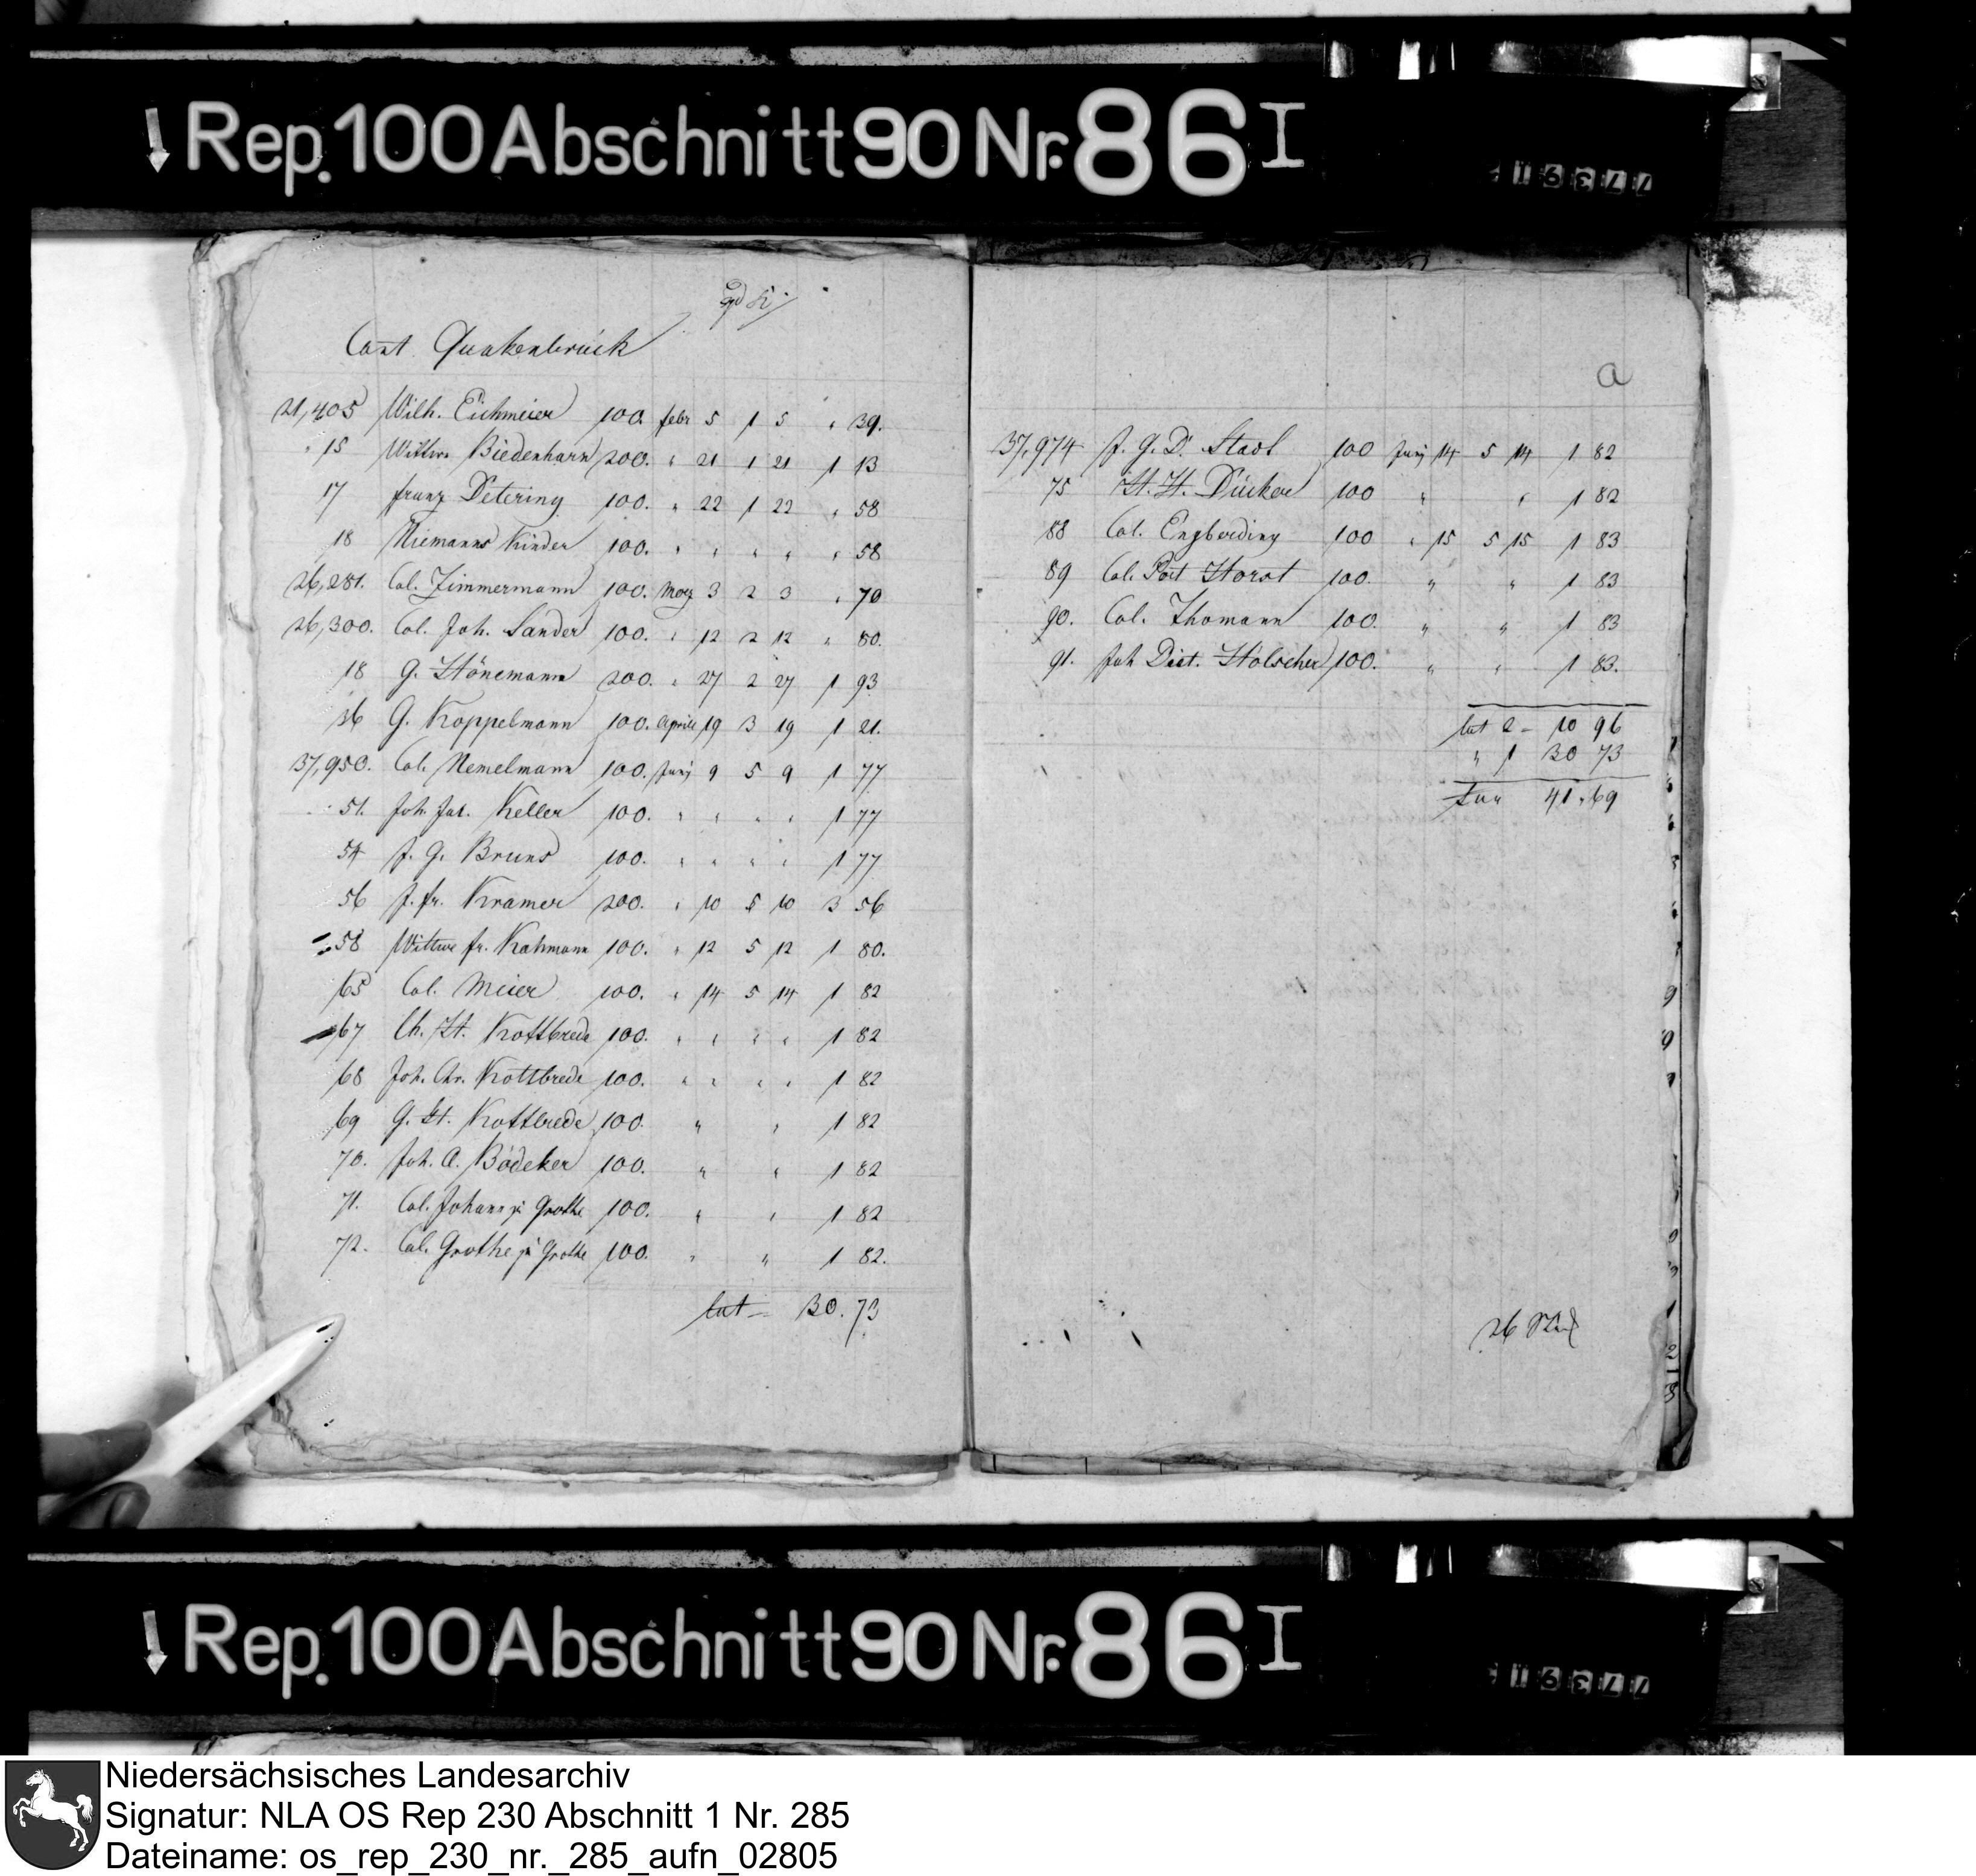 Rep. 100 Abschnitt 90 Nr. 86 I
77391
Cant Quakenbrück
21,405 Wilh. Eichmeier 100. febr 5 1 5 " 39.
" 15 Wittwe Biedenharn 200. " 21 1 21 1 13
17 franz Detering 100. " 22 1 22 " 58
18 Niemanns Kinder 100. " " " " " 58
26,281. Col. Zimmermann 100. Merz 3 2 3 " 70
26,300. Col. Joh. Sander 100. " 12 2 12 " 80.
18 G. Hönemann 200. " 27 2 27 1 93
G. Koppelmann 100. Aprill 19 3 19 1 21.
37,950. Col. Nemelmann 100. Junj 9 5 9 1 77
51. Joh. Keller 100. " " " " 1 77
54 J. G. Bruns 100. " " " " 1 77
56 J. fr. Kramer 200. " 10 5 10 3 56
58 Wittwe fr. Kahmann 100. " 12 5 12 1 80.
65 Col. Meier 100. " 14 5 14 1 82
67 Ch. H. Kottbrede 100. " " " " 1 82
68 Joh. Chr. Kottbrede 100. " " " " 1 82
69 G. H. Kottbrede 100. " " 1 82
70. Joh. A. Bödeker 100. " " 1 82
71. Col. Johann zu Grothe 100. " " 1 82
72. Col. Grothe zu Grothe 100. " " 1 82.
lat 30. 73
a
37,974 J. G. D. Stadl 100 Junj 14 5 14 1 82
75 H. H. Dücker 100 " " 1 82
88 Col. Engberding 100 " 15 5 15 1 83
89 Col. Horst 100. " " 1 83
90. Col. Thomann 100. " " 1 83
91. Joh Diet. Holscher 100. " " 1 83.
lat 2 - 10 96
" 1 30 73
41. 69
26
Rep. 100 Abschnitt 90 Nr. 86 I
77391
Niedersächsisches Landesarchiv
Signatur: NLA OS Rep 230 Abschnitt 1 Nr. 285
Dateiname: os_rep_230_nr._285_aufn_02805